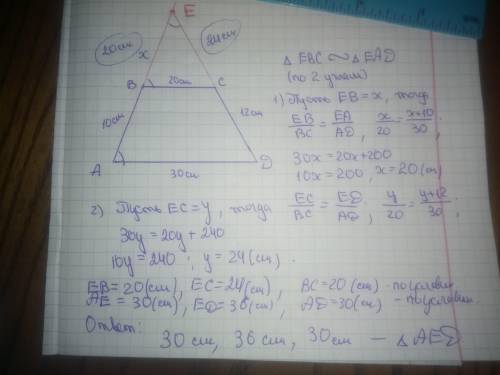 E
20см
24см
x
B
20см
C
10см
12см
A
D
30см
△ EBC ∾ △ EAD
(по 2 углам)
1) Пусть EB = x, тогда
EB/BC = EA/AD, x/20 = x+10/30;
30x = 20x + 200
10x = 200, x = 20 (см)
2) Пусть EC = y, тогда EC/BC = ED/AD; y/20 = y+12/30;
30y = 20y + 240
10y = 240; y = 24 (см).
EB = 20 (см), EC = 24 (см), BC = 20 (см) - по условию
AE = 30 (см), ED = 36 (см), AD = 30 (см) - по условию
Ответ:
30 см, 36 см, 30 см — △ AED